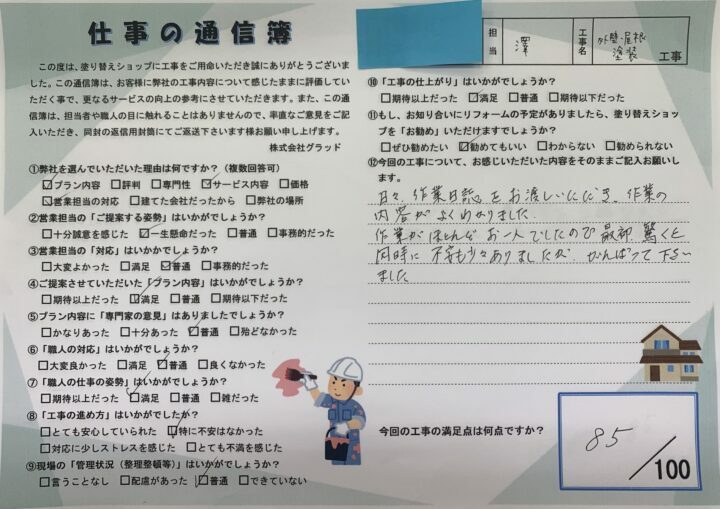 仕事の通信簿
担当
澤
工事名
外壁・屋根
塗装
工事
この度は、塗り替えショップに工事をご用命いただき誠にありがとうございま
した。この通信簿は、お客様に弊社の工事内容について感じたままに評価してい
ただく事で、更なるサービスの向上の参考にさせていただきます。また、この通
信簿は、担当者や職人の目に触れることはありませんので、率直なご意見をご記
入いただき、同封の返信用封筒にてご返送下さいます様お願い申し上げます。
株式会社グラッド
①弊社を選んでいただいた理由は何ですか?(複数回答可)
☑プラン内容 □評判 □専門性 ☑サービス内容 □価格
☑営業担当の対応 □建てた会社だったから □弊社の場所
②営業担当の「ご提案する姿勢」はいかがでしょうか?
□十分誠意を感じた ☑一生懸命だった □普通 □事務的だった
③営業担当の「対応」はいかかでしょうか?
□大変よかった □満足 ☑普通 □事務的だった
④ご提案させていただいた「プラン内容」はいかがでしょうか?
□期待以上だった ☑満足 □普通 □期待以下だった
⑤プラン内容に「専門家の意見」はありましたでしょうか?
□かなりあった □十分あった ☑普通 □殆どなかった
⑥「職人の対応」はいかがでしょうか?
□大変良かった □満足 ☑普通 □良くなかった
⑦「職人の仕事の姿勢」はいかがでしょうか?
□期待以上だった ☑満足 □普通 □雑だった
⑧「工事の進め方」はいかがでしたか?
□とても安心していられた ☑特に不安はなかった
□対応に少しストレスを感じた □とても不満を感じた
⑨現場の「管理状況(整理整頓等)」はいかがでしょうか?
□言うことなし □配慮があった ☑普通 □できていない
⑩「工事の仕上がり」はいかがでしょうか?
□期待以上だった ☑満足 □普通 □期待以下だった
⑪もし、お知り合いにリフォームの予定がありましたら、塗り替えショッ
プを「お勧め」いただけますでしょうか?
□ぜひ勧めたい ☑勧めてもいい □わからない □勧められない
⑫今回の工事について、お感じいただいた内容をそのままご記入お願いし
ます。
日々、作業日誌をお渡しいただき、作業の
内容がよくわかりました。
作業がほとんどお一人でしたので最初驚くと
同時に不安も少々ありましたが、がんばって下さい
ました
今回の工事の満足点は何点ですか?
85/100